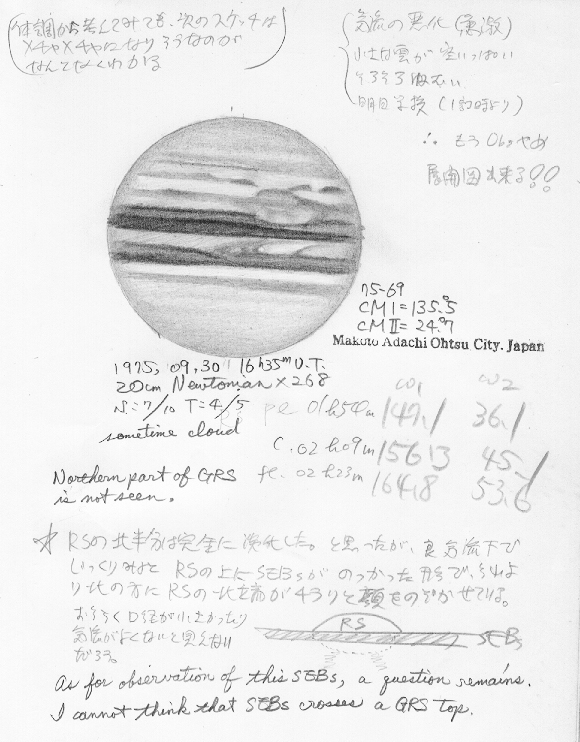 体調から考えてみても、次のスケッチは
メチャメチャになりそうなのが
なんとなくわかる
気流の悪化
小さな雲が空いっぱい
そろそろねむい
明日学校
∴ もうObsやめ
展開図出来る!!
75-69
CM I = 135.°5
CM II = 24.°7
Makoto Adachi Ohtsu City. Japan
1975, 09, 30 16h35m U.T.
20cm Newtonian × 268
S=7/10 T=4/5
sometime cloud
ω1 ω2
pe 01h54m 147.1 36.1
C. 02h09m 156.3 45.1
fe. 02h23m 164.8 53.6
Northern part of GRS
is not seen.
☆ RSの北半分は完全に消化した。と思ったが、良気流下で
じっくりみると RSの上にSEBsがのっかった形で、それよ
り北の方にRSの北部がチラリと顔をのぞかせている。
おそらく口径が小さかったり
気流がよくないと見えない
だろう。
RS
SEBs
As for observation of this SEBs, a question remains.
I cannot think that SEBs crosses a GRS top.